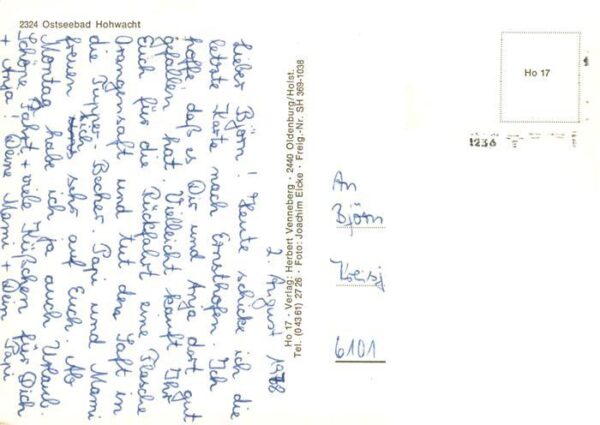 2324 Ostseebad Hohwacht
2. August 1978
Lieber Björn! Heute schicke ich die
letzte Karte nach Ernsthofen. Ich
hoffe daß es Dir und Anja dort gut
gefallen hat. Vielleicht kauft Ihr
Euch für die Rückfahrt eine Flasche
Orangensaft und tut den Saft in
die Tupper Becher. Papi und Mami
freuen sich sehr auf Euch. Ab
Montag habe ich ja auch Urlaub.
Schöne Fahrt + viele Küßchen für Dich
+ Anja! Deine Mami + Dein Papi
Ho 17 · Verlag: Herbert Venneberg · 2440 Oldenburg/Holst.
Tel. (04361) 2726 · Foto: Joachim Eicke · Freig.-Nr. SH 369-1038
Ho 17
1236
An
Björn
6101